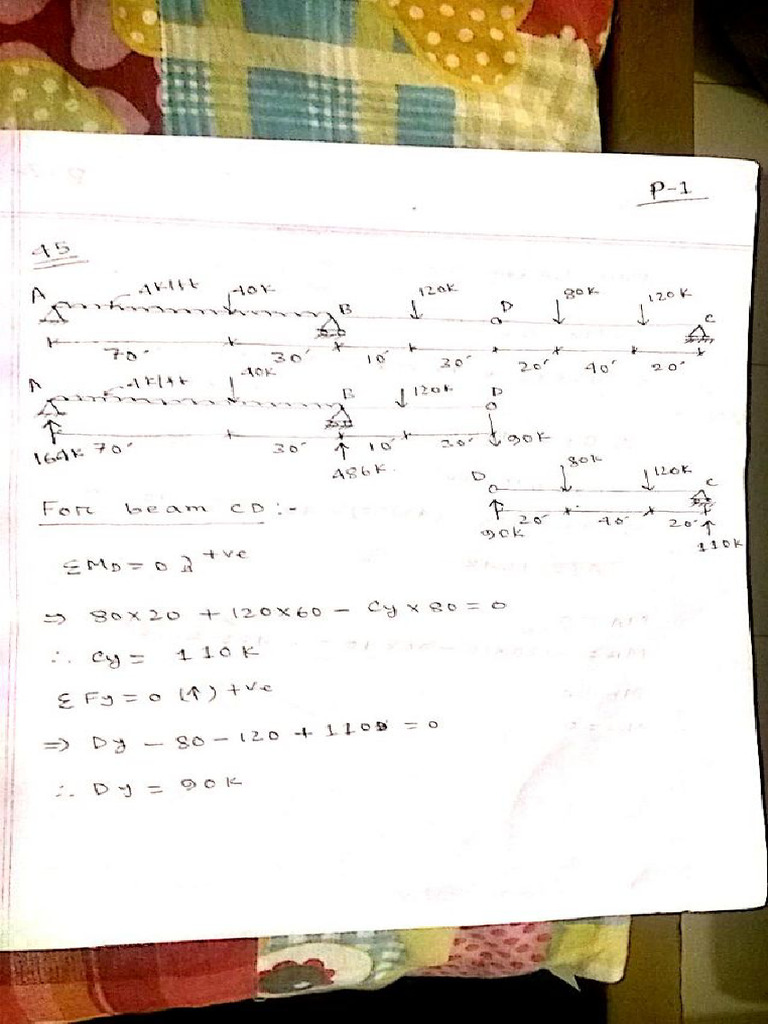 P-1
45
A 4k/ft 40k B 120k D 80k 120k C
70' 30' 10' 30' 20' 40' 20'
A 4k/ft 40k B 120k D
164k 70' 30' 10' 30' 90k
486k
D 80k 120k C
90k 20' 40' 20' 110k
For beam CD :-
ΣMD = 0 +ve
⇒ 80×20 + 120×60 - Cy × 80 = 0
∴ Cy = 110k
ΣFy = 0 (↑) +ve
⇒ Dy - 80 - 120 + 110 = 0
∴ Dy = 90k